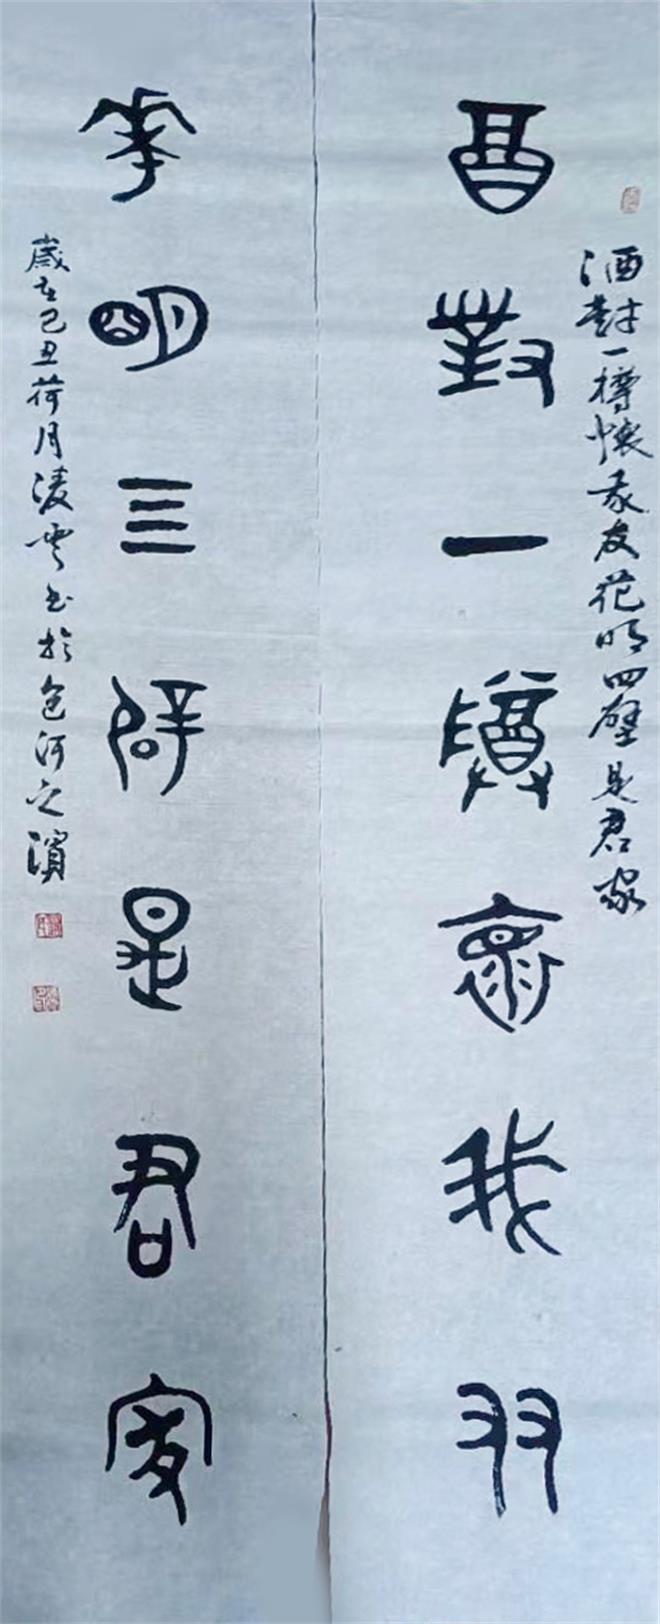 酒對一樽懷我友花明四壁是君家
酒對一樽懷我友
花明三壁是君家
歲在己丑荷月凌雲書於包河之濱